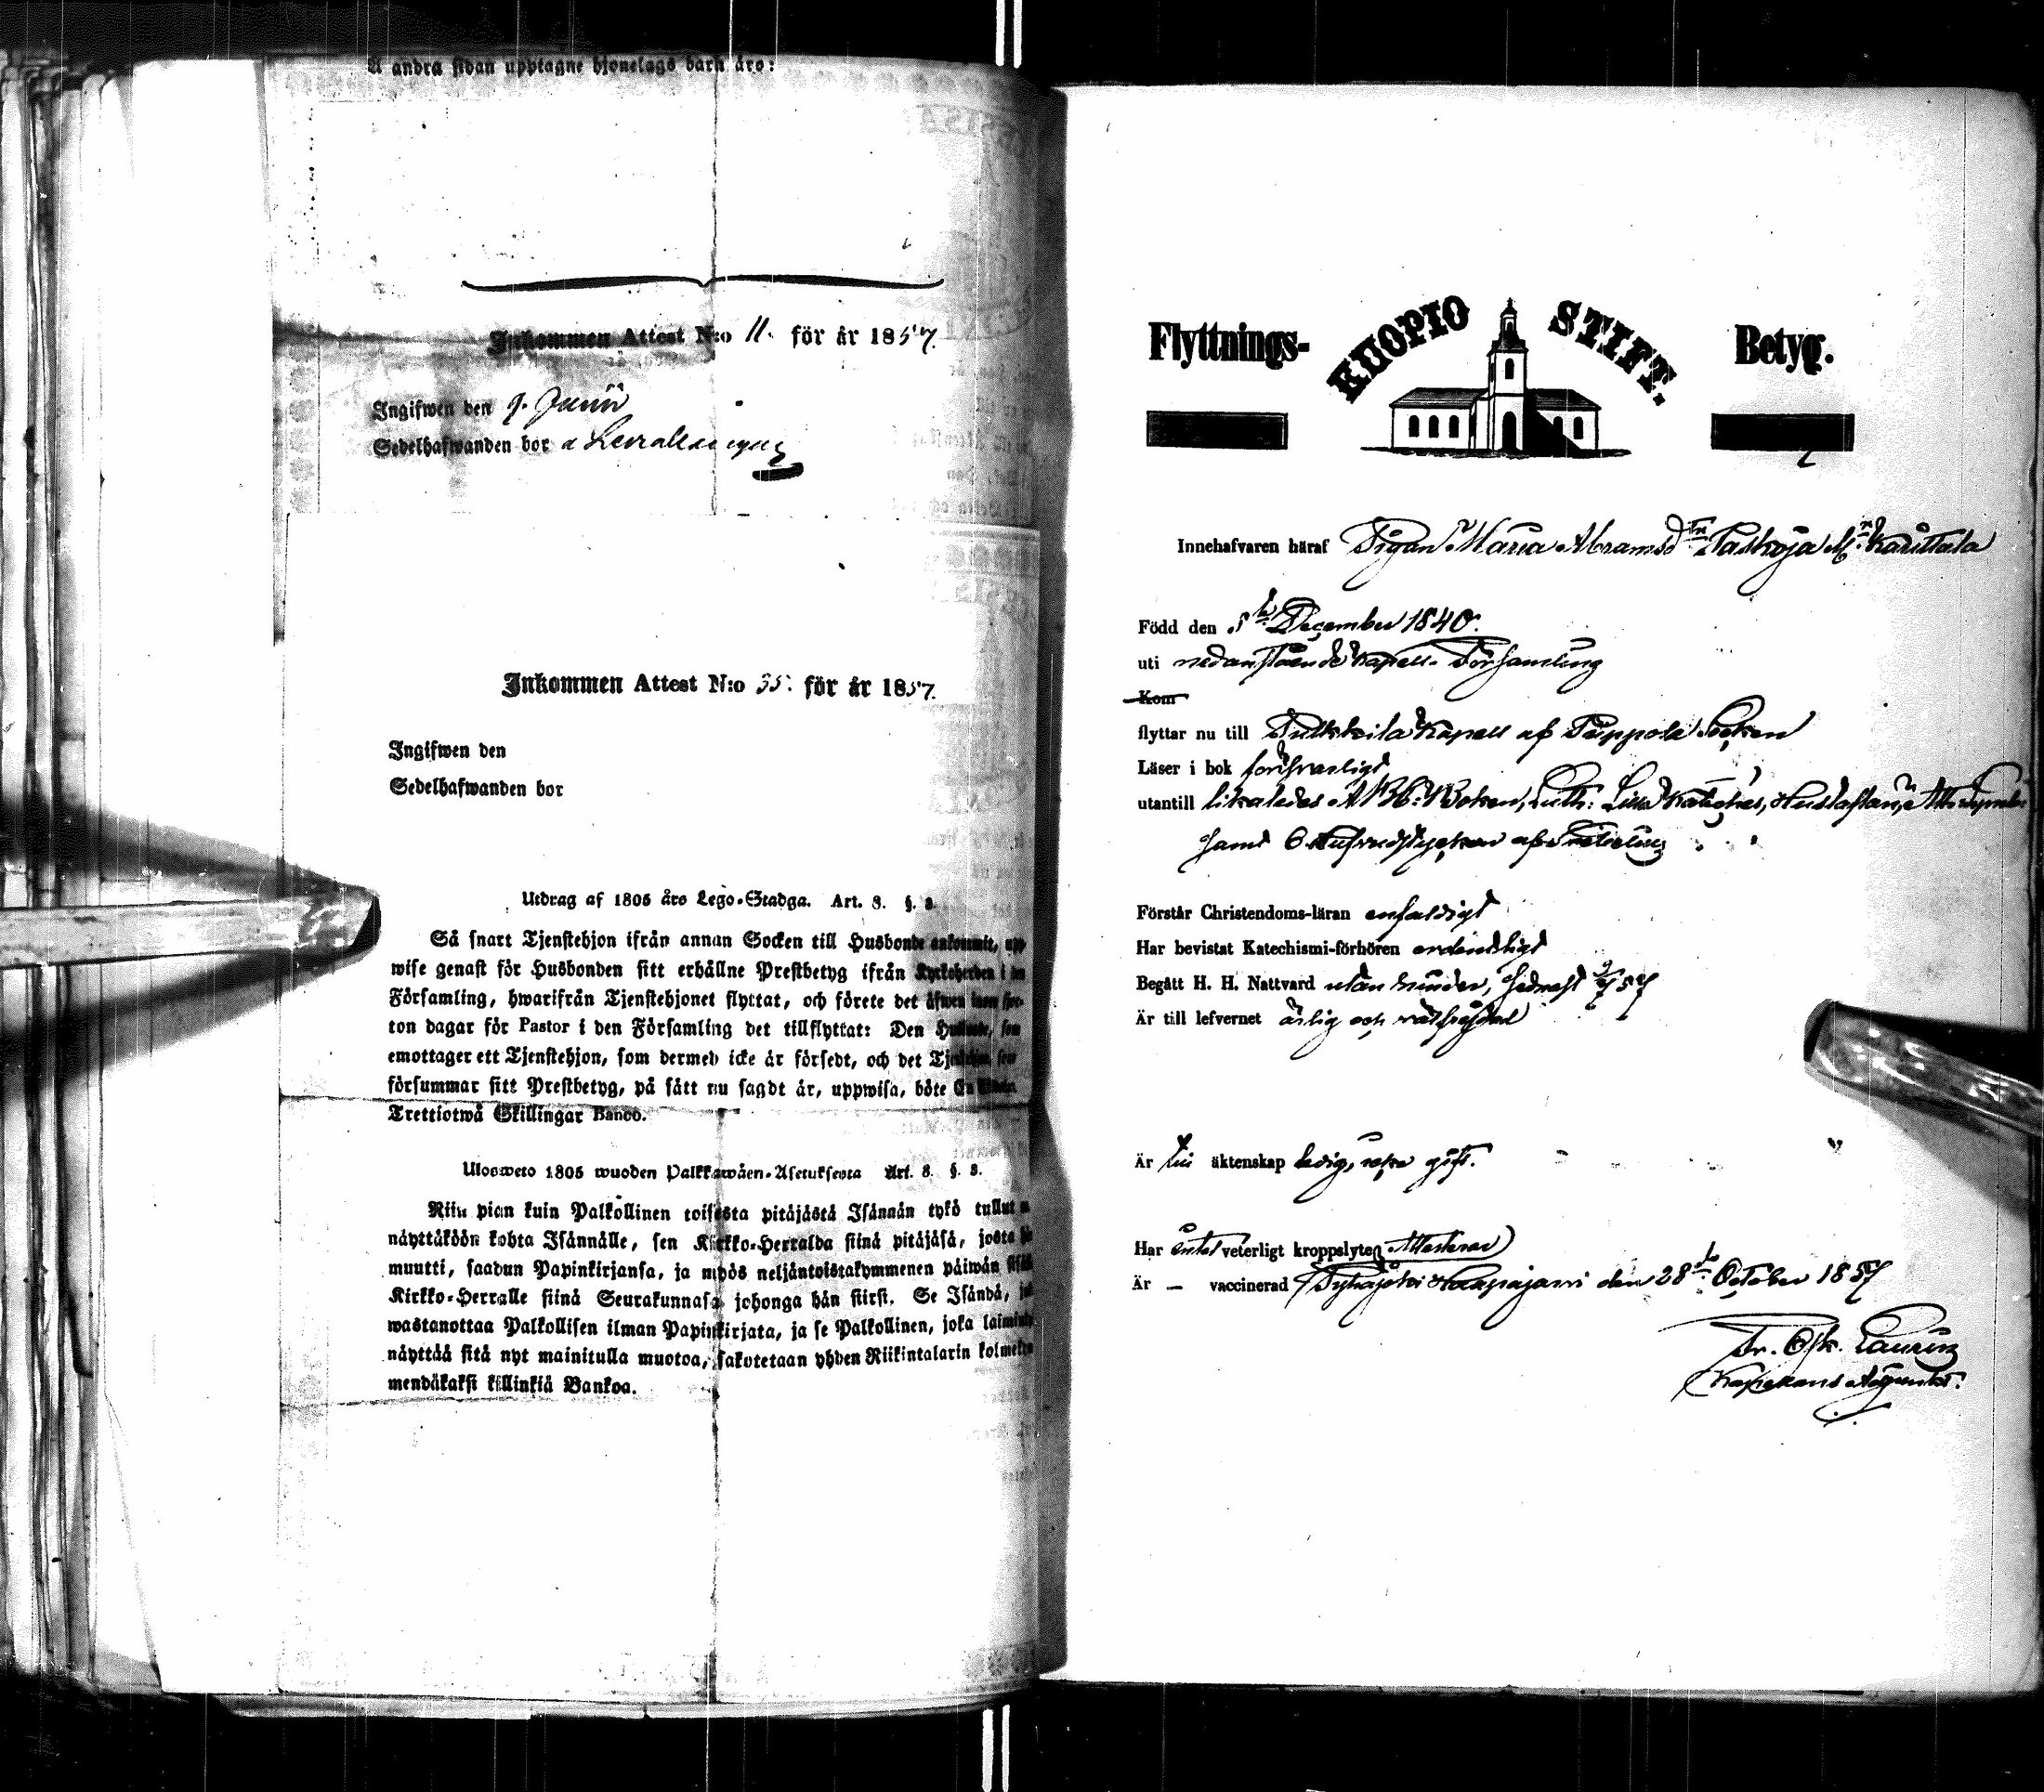 A andra sidan upptagne hjonelags barn äro:
Inkommen Attest N:o 11. för år 1857.
Ingifwen den 9. Junii
Sedelhafwanden bor
Inkommen Attest N:o 35. för år 1857.
Ingifwen den
Sedelhafwanden bor
Utdrag af 1805 års Lego-Stadga. Art. 8. §. 2.
Så snart Tjenstehjon ifrån annan Socken till Husbonde ankommit, upp
wise genast för Husbonden sitt erhållne Prestbetyg ifrån Kyrkoherden i den
Församling, hwarifrån Tjenstehjonet flyttat, och förete det äfwen inom fjor-
ton dagar för Pastor i den Församling det tillflyttat: Den Husbonde, som
emottager ett Tjenstehjon, som dermed icke är försedt, och det Tjenstehjon som
försummar sitt Prestbetyg, på sätt nu sagdt är, uppwisa, böte En Riksdr.
Trettiotwå Skillingar Banco.
Ulosweto 1805 wuoden Palkkawäen-Asetuksesta Art. 8. §.
Niin pian kuin Palkollinen toisesta pitäjästä Isännän tykö tullut
näyttäköön kohta Isännälle, sen Kirkko-Herralda siinä pitäjäsä, josta hän
muutti, saadun Papinkirjansa, ja myös neljäntoistakymmenen päiwän sisällä
Kirkko-Herralle siinä Seurakunnasa johonga hän siirsi. Se Isändä, joka
wastanottaa Palkollisen ilman Papinkirjata, ja se Palkollinen, joka laiminlyö
näyttää sitä nyt mainitulla muotoa, sakotetaan yhden Riikintalarin kolmekym
mendäkaksi killinkiä Bankoa.
Flyttnings- KUOPIO STIFT. Betyg.
Innehafvaren häraf Pigan Maria Abramsd:tr Karittala
Född den 5te December 1840.
uti nedanstående Kapell-Församling
Kom
flyttar nu till Pulkkila Kapell af Pippola Socken
Läser i bok försvarligt
utantill likaledes A B C Boken, Luth: Lilla Kateches, Hustaflan,
samt 6 Hufvudstycken af Svebelius
Förstår Christendoms-läran enfaldigt
Har bevistat Katechismi-förhören ordentligt
Begått H. H. Nattvard utan hinder, sednast 57
Är till lefvernet ärlig och välfrejdad
Är till äktenskap ledig, icke gift.
Har intet veterligt kroppslyte, Attesterar
Är – vaccinerad Pyhäjoki Haapajärvi den 28de October 1857
Fr. Osk. Laurin
Kapellans Adjunkt.